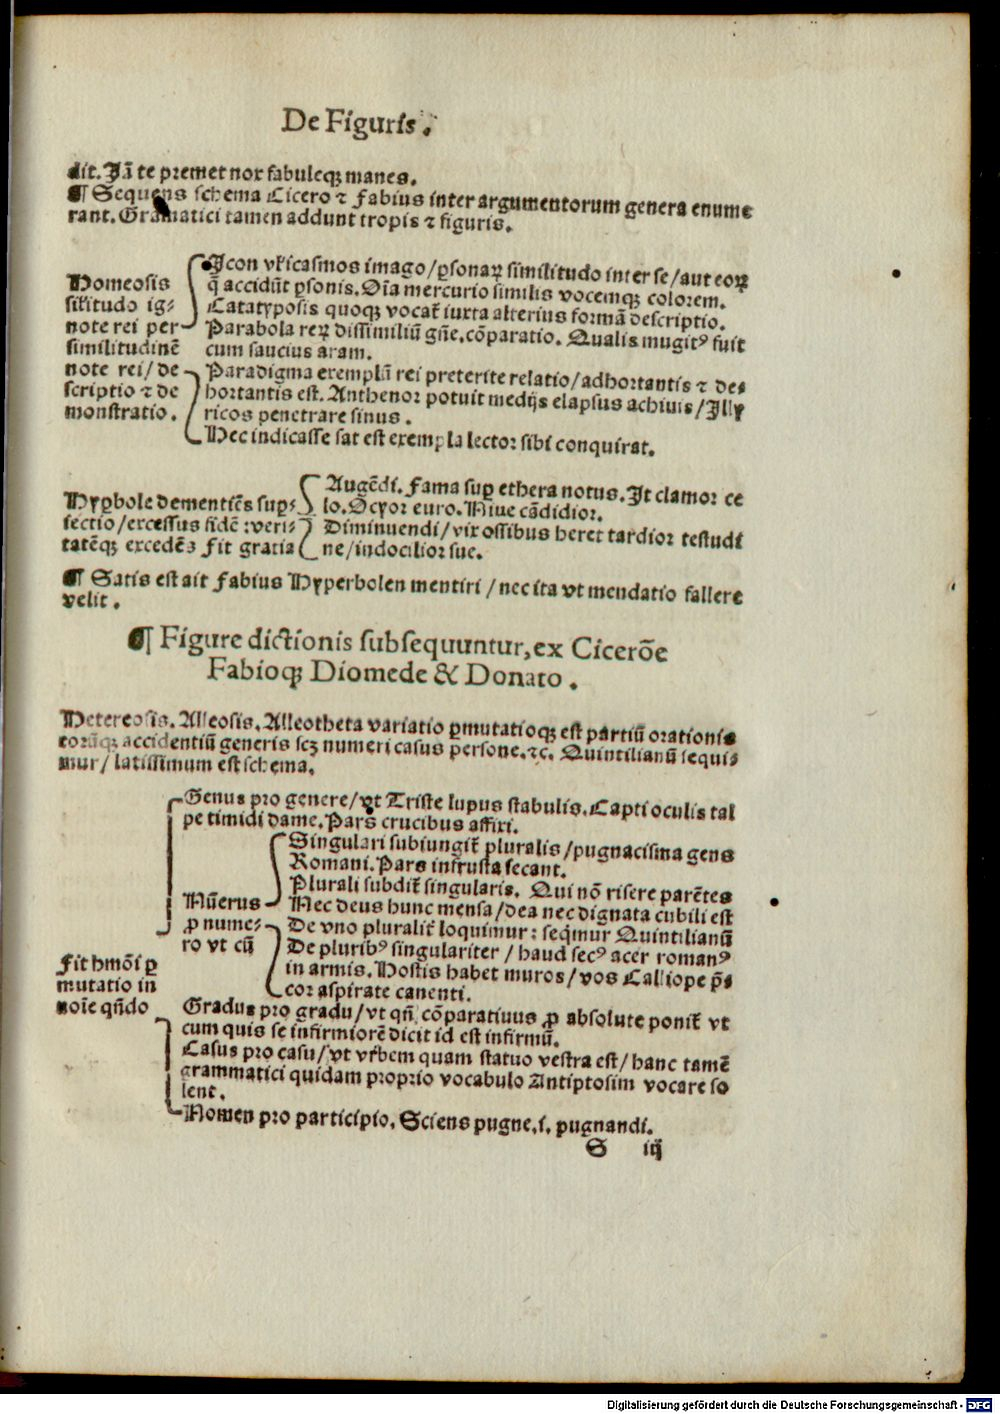 De Figuris.
dit. Jā te premet nox fabuleqꝫ manes.
¶ Sequens schema Cicero ⁊ Fabius inter argumentorum genera enume
rant. Gramatici tamen addunt tropis ⁊ figuris.
Homeosis
silitudo ig-
note rei per
similitudinē
note rei/de
scriptio ⁊ de
monstratio.
Icon vel icasmos imago/ꝑsonaꝝ similitudo inter se/aut eoꝝ
q̄ accidūt ꝑsonis. Oīa mercurio similis vocemqꝫ colorem.
Catatyposis quoqꝫ vocat᷑ iuxta alterius formā descriptio.
Parabola reꝝ dissimiliū gn̄e.cōparatio. Qualis mugitꝰ fuit
cum saucius aram.
Paradigma exemplū rei preterite relatio/adhortantis ⁊ de-
hortantis est. Anthenor potuit medijs elapsus achiuis/Illy
ricos penetrare sinus.
Hec indicasse sat est exempla lector sibi conquirat.
Hyꝑbole dementiēs suꝑ-
iectio/excessus fidē:veri-
tatēqꝫ excedēs Fit gratia
Augēdi. Fama suꝑ ethera notus. It clamor ce
lo. Ocyor euro. Niue cādidior.
Diminuendi/vix ossibus heret tardior testudi
ne/indocilior sue.
¶ Satis est ait Fabius Hyperbolen mentiri/nec ita vt mendatio fallere
velit.
¶ Figure dictionis subsequuntur,ex Cicerōe
Fabioqꝫ Diomede & Donato.
Hetereosis. Alleosis. Alleotheta variatio ꝑmutatioqꝫ est partiū orationis
eorūqꝫ accidentiū generis scꝫ numeri casus persone.⁊c. Quintilianū sequi-
mur/latissimum est schema.
Fit hmōi ꝑ
mutatio in
noīe qn̄do
Genus pro genere/vt Triste lupus stabulis. Capti oculis tal
pe timidi dame. Pars crucibus affixi.
Nūerus
ꝓ nume-
ro vt cū
Singulari subiungit᷑ pluralis/pugnacisma gens
Romani. Pars in frusta secant.
Plurali subdit᷑ singularis. Qui nō risere parētes
Nec deus hunc mensa/dea nec dignata cubili est
De vno pluralit᷑ loquimur: seqͥmur Quintilianū
De pluribꝰ singulariter/haud secꝰ acer romanꝰ
in armis. Hostis habet muros/vos Calliope p̄-
cor aspirate canenti.
Gradus pro gradu/vt qn̄ cōparatiuus ꝓ absolute ponit᷑ vt
cum quis se infirmiorē dicit id est infirmū.
Casus pro casu/vt vrbem quam statuo vestra est/hanc tamē
grammatici quidam proprio vocabulo Antiptosim vocare so
lent.
Nomen pro participio. Sciens pugne.i. pugnandi.
S iij
Digitalisierung gefördert durch die Deutsche Forschungsgemeinschaft - DFG